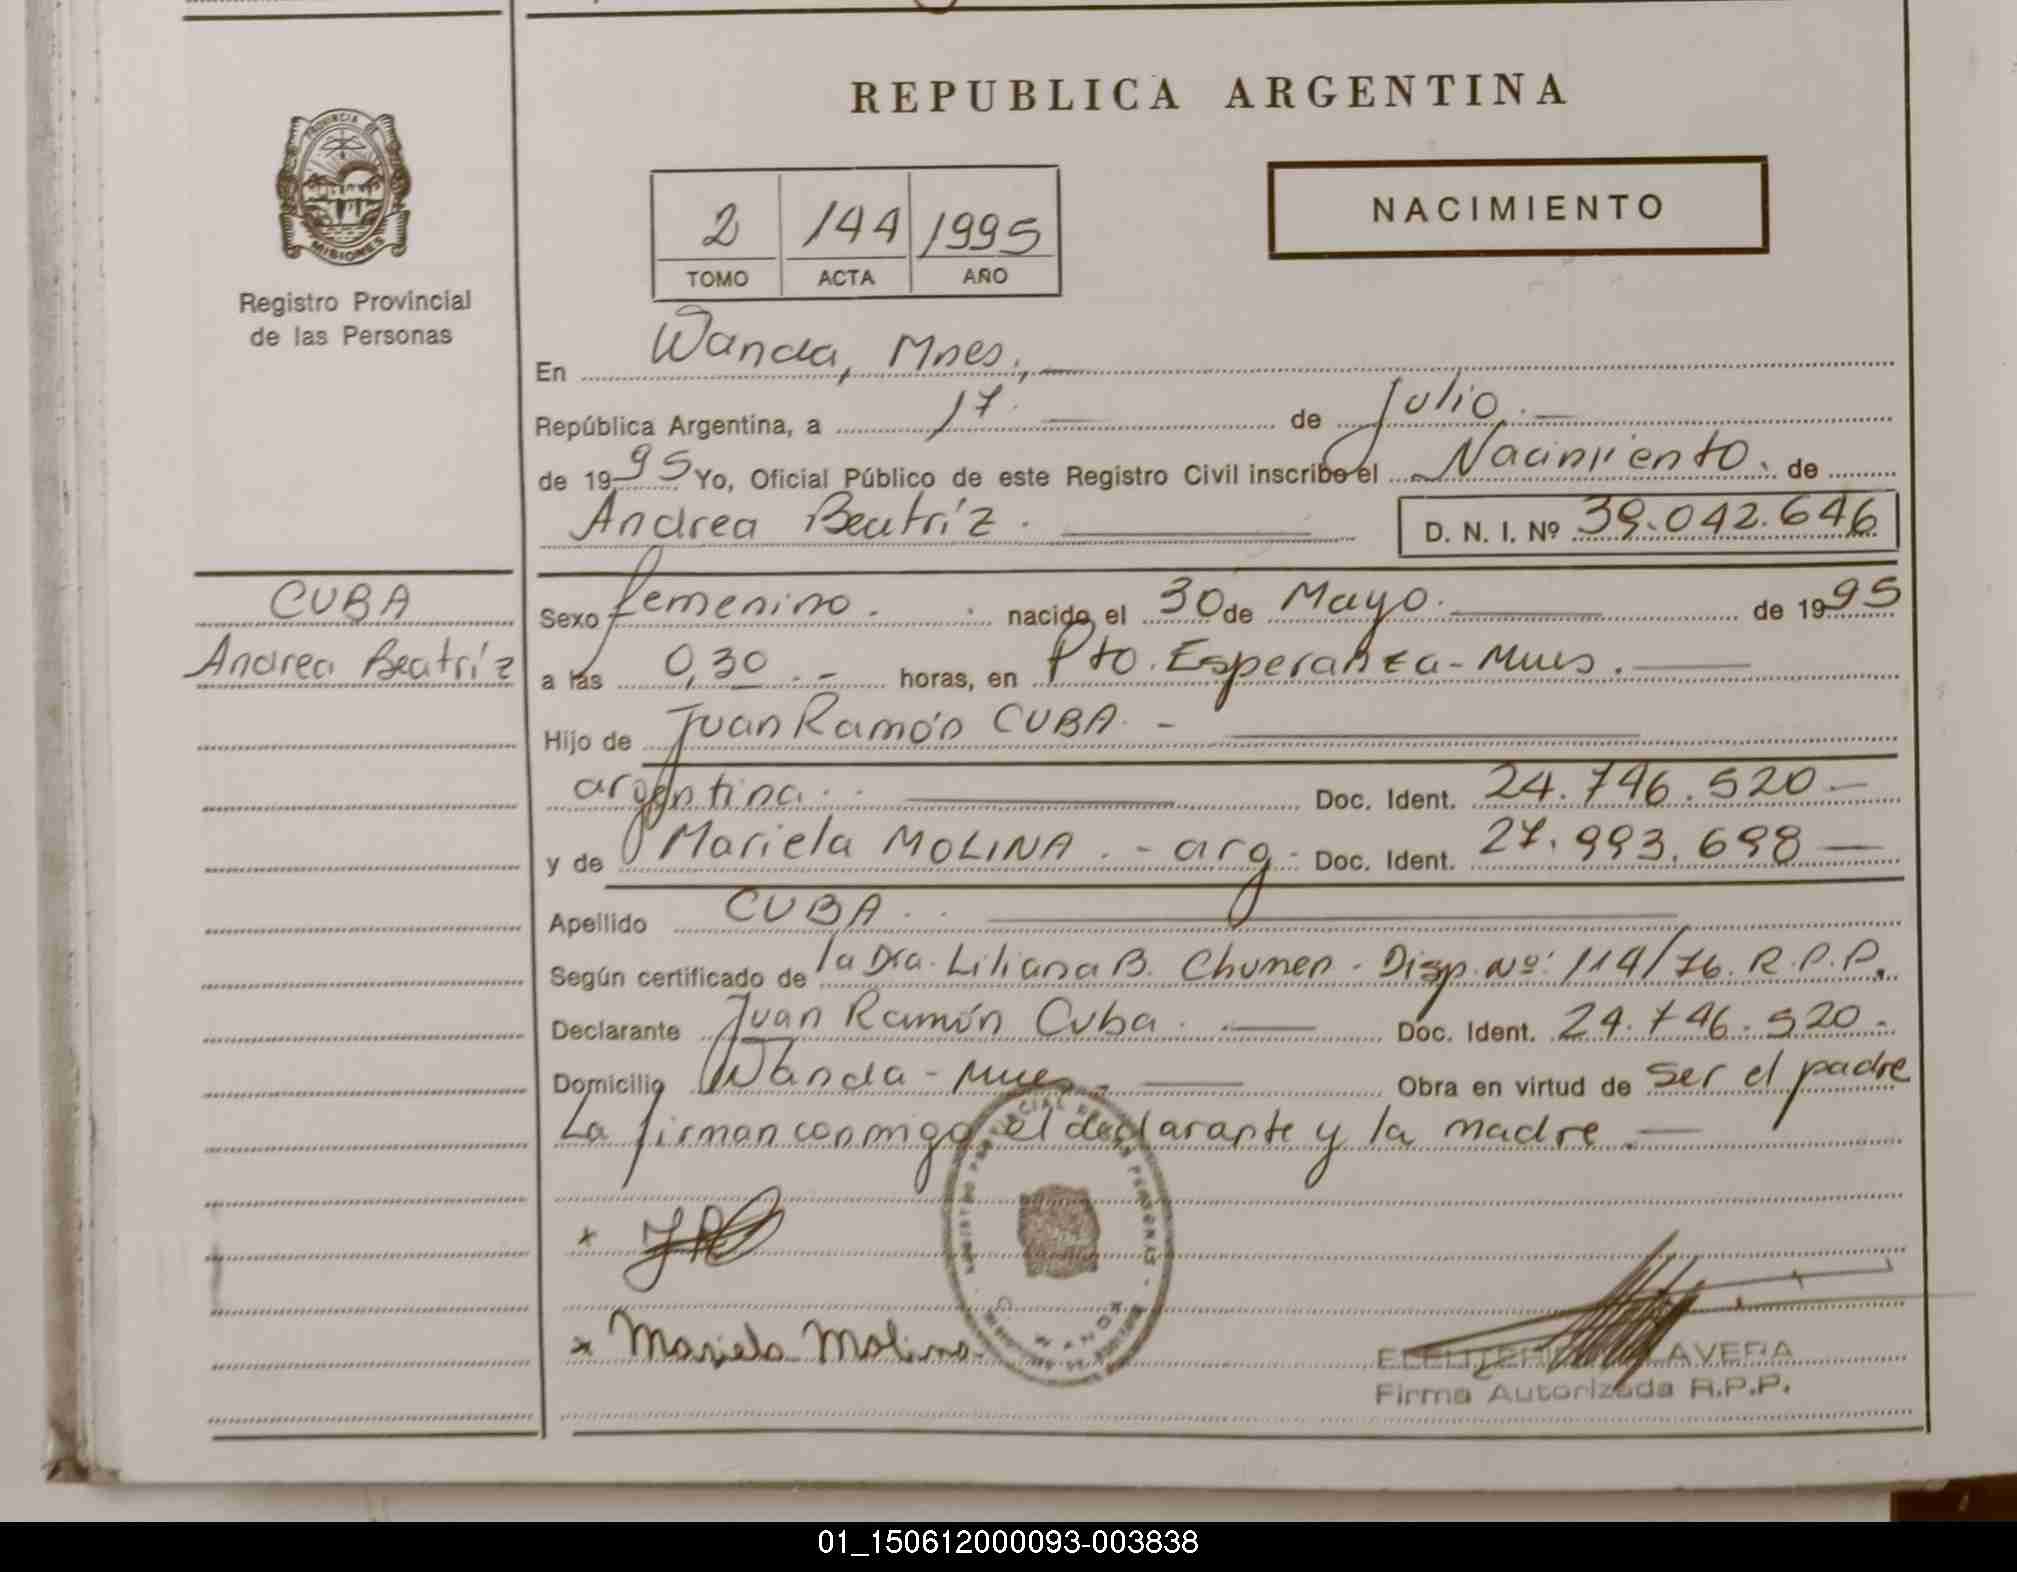 REPUBLICA ARGENTINA
PROVINCIA DE
MISIONES
Registro Provincial
de las Personas
NACIMIENTO
2 144 1995
TOMO ACTA AÑO
En Wanda, Mnes.,
República Argentina, a 17 de Julio
de 1995 Yo, Oficial Público de este Registro Civil inscribo el Nacimiento. de
Andrea Beatríz. D. N. I. Nº 39.042.646
CUBA
Andrea Beatríz
Sexo femenino. nacido el 30 de Mayo. de 1995
a las 0,30 horas, en Pto. Esperanza - Mnes.
Hijo de Juan Ramón CUBA. -
argentina. Doc. Ident. 24.746.520 -
y de Mariela MOLINA. - arg. Doc. Ident. 27.993.698 -
Apellido CUBA.
Según certificado de la Dra. Liliana B. Disp. Nº 114/76. R.P.P.
Declarante Juan Ramón Cuba. Doc. Ident. 24.746.520.
Domicilio Wanda - Mnes. Obra en virtud de ser el padre
La firman conmigo el declarante y la madre.
x
x Mariela Molina
Firma Autorizada R.P.P.
01_150612000093-003838